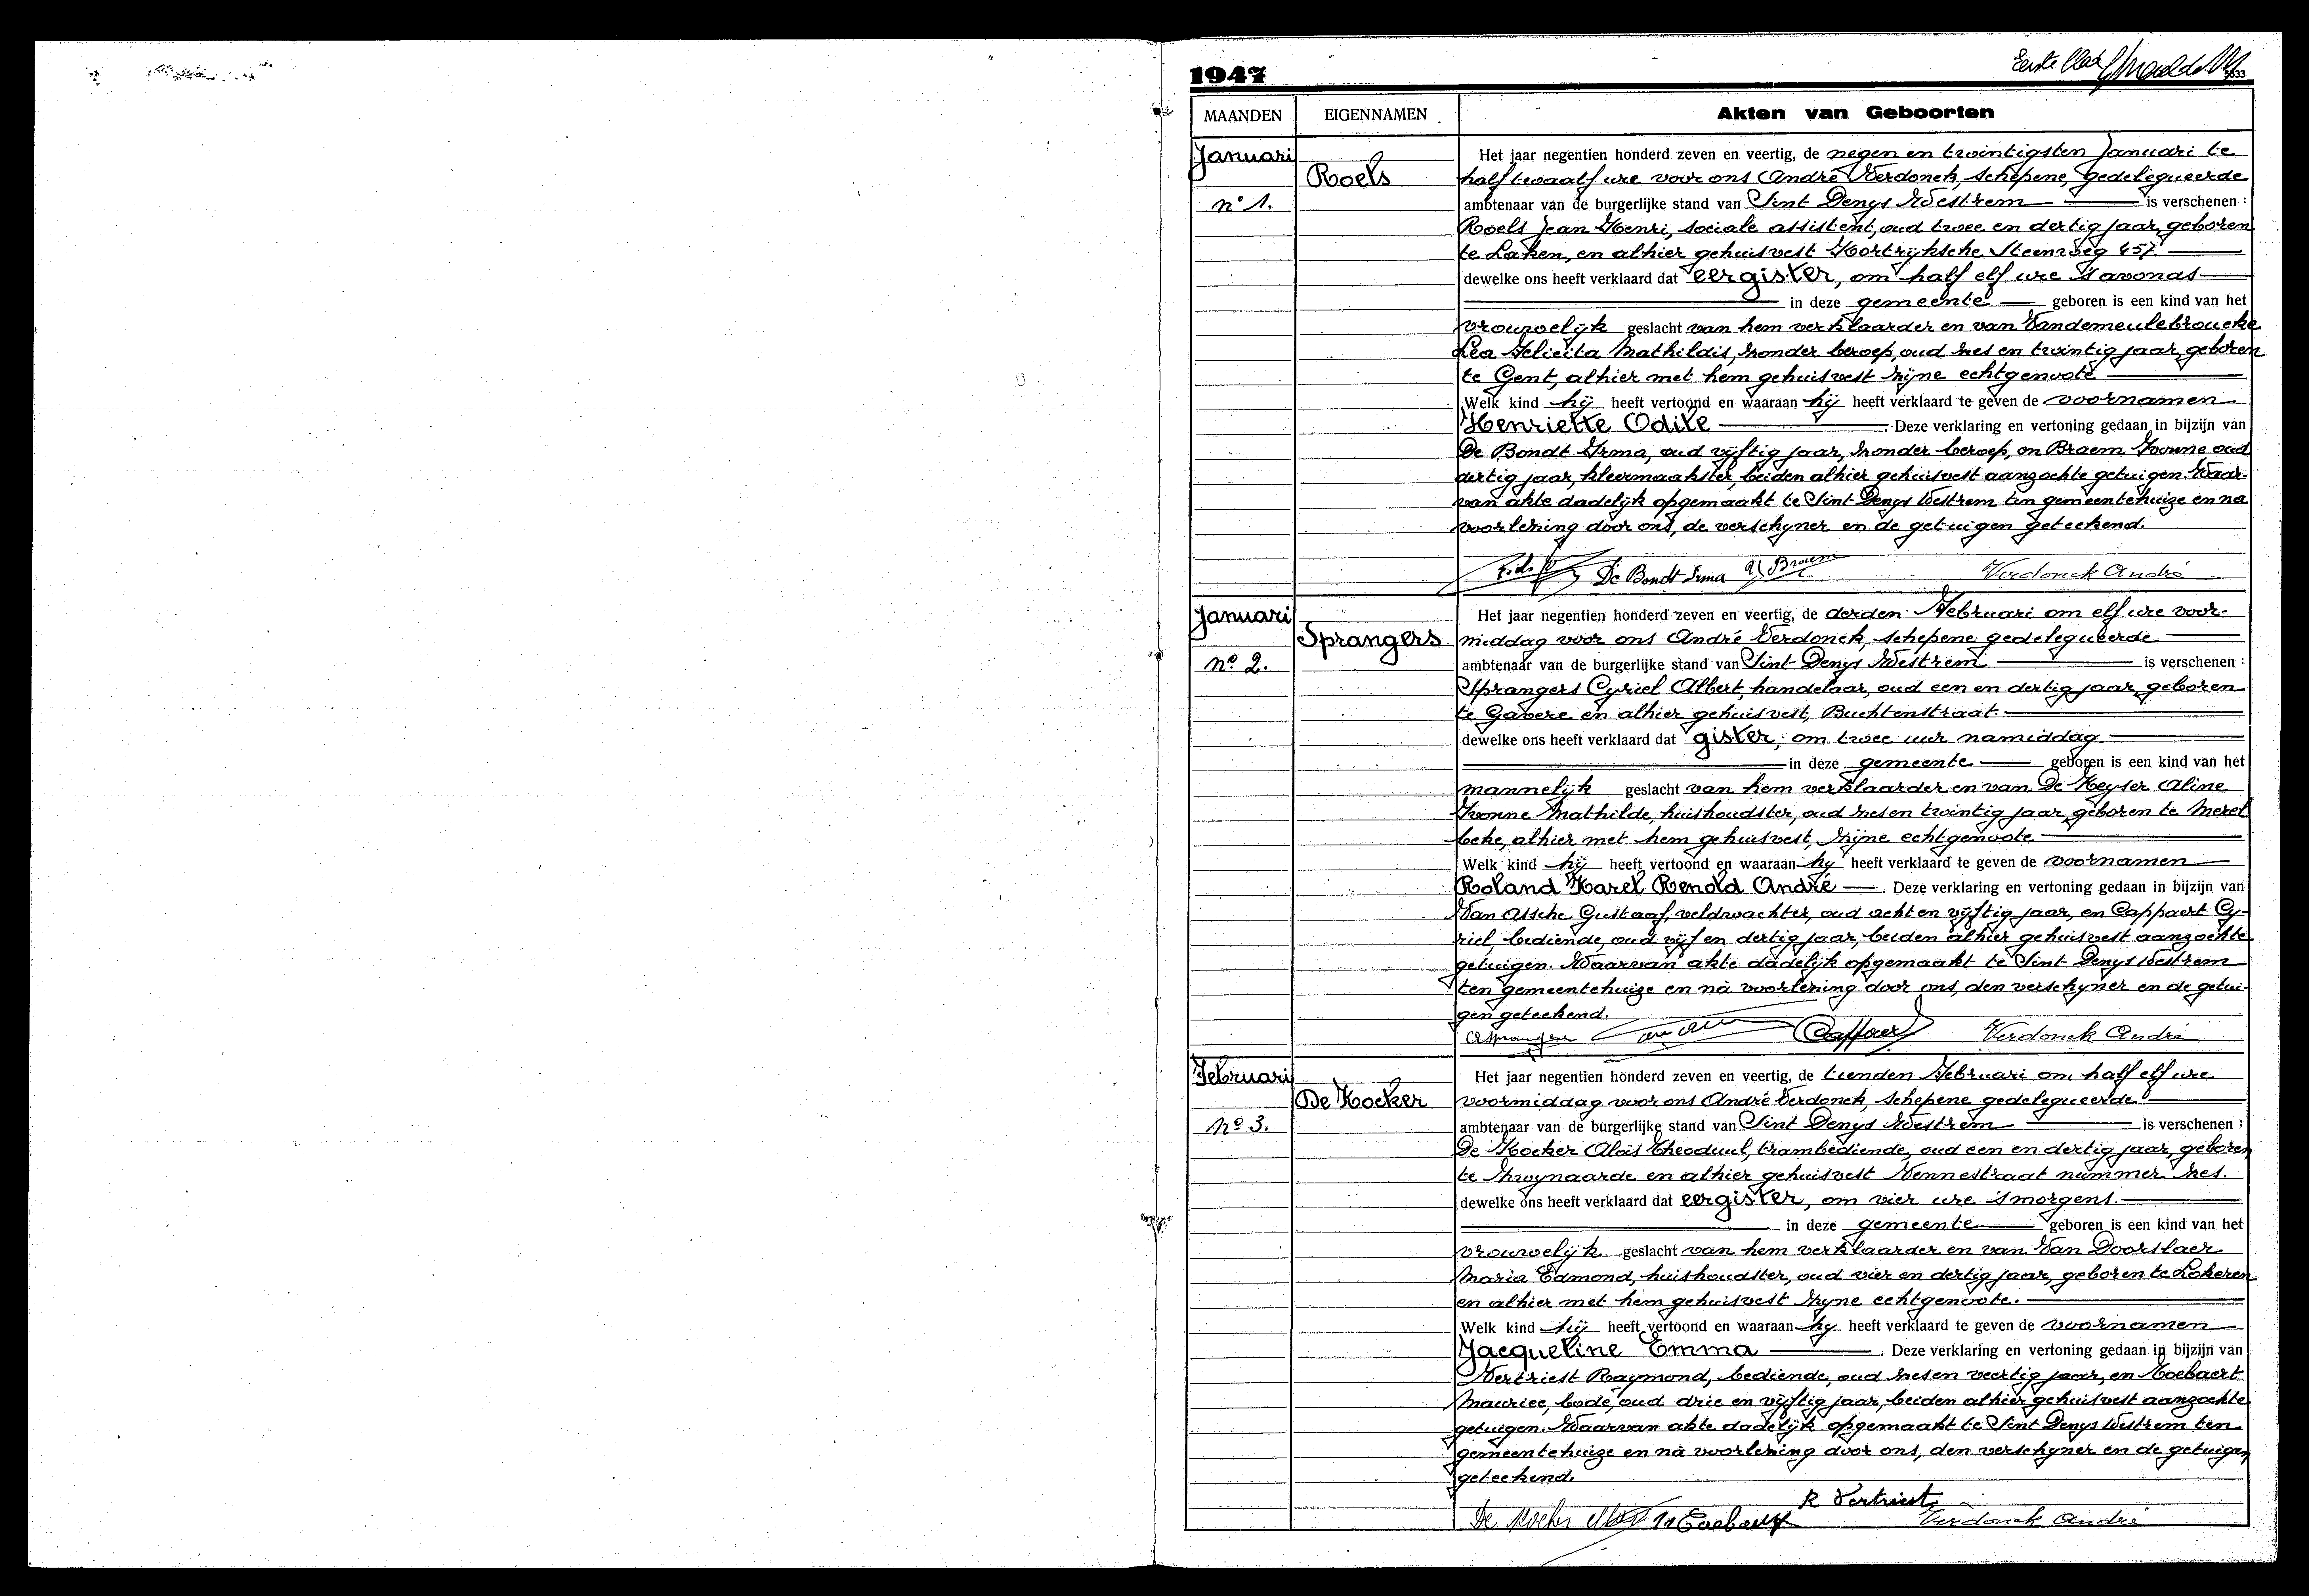 1947
Eerste blad
MAANDEN
EIGENNAMEN
Akten van Geboorten
Januari
Roels
n° 1.
Het jaar negentien honderd zeven en veertig, de negen en twintigsten Januari te
half twaalf ure voor ons André Verdonck, schepene, gedelegueerde
ambtenaar van de burgerlijke stand van Sint Denys Westrem is verschenen :
Roels Jean Henri, sociale assistent, oud twee en dertig jaar, geboren
te Laken, en alhier gehuisvest Kortrijksche Steenweg 457.
dewelke ons heeft verklaard dat eergister, om half elf ure 's avonds
in deze gemeente geboren is een kind van het
vrouwelijk geslacht van hem verklaarder en van Vandemeulebroucke
Lea Felicita Mathildis, zonder beroep, oud zes en twintig jaar, geboren
te Gent, alhier met hem gehuisvest zijne echtgenoote
Welk kind hij heeft vertoond en waaraan hij heeft verklaard te geven de voornamen
Henriette Odile Deze verklaring en vertoning gedaan in bijzijn van
De Bondt Irma, oud vijftig jaar, zonder beroep, en Braem Yvonne oud
dertig jaar, kleermaakster, beiden alhier gehuisvest aanzochte getuigen. Waar-
van akte dadelijk opgemaakt te Sint Denys Westrem ten gemeentehuize en na
voorlezing door ons, de verschyner en de getuigen geteekend.
De Bondt Irma Y Braem Verdonck André
Januari
Sprangers
n° 2.
Het jaar negentien honderd zeven en veertig, de derden Februari om elf ure voor-
middag voor ons André Verdonck, schepene gedelegueerde
ambtenaar van de burgerlijke stand van Sint Denys Westrem is verschenen :
Sprangers Cyriel Albert, handelaar, oud een en dertig jaar, geboren
te Gavere en alhier gehuisvest, Buchtenstraat.
dewelke ons heeft verklaard dat gister, om twee uur namiddag
in deze gemeente geboren is een kind van het
mannelijk geslacht van hem verklaarder en van De Keyser Aline
Yvonne Mathilde, huishoudster, oud zes en twintig jaar, geboren te Merel
beke, alhier met hem gehuisvest, zijne echtgenoote
Welk kind hij heeft vertoond en waaraan hy heeft verklaard te geven de voornamen
Roland Karel Renold André . Deze verklaring en vertoning gedaan in bijzijn van
Van Assche Gustaaf, veldwachter, oud acht en vijftig jaar, en Cappaert Cy-
riel, bediende, oud vijf en dertig jaar, beiden alhier gehuisvest aanzochte
getuigen. Waarvan akte dadelijk opgemaakt te Sint Denys Westrem
ten gemeentehuize en nà voorlezing door ons, den verschyner en de getui-
gen geteekend.
Verdonck André
Februari
De Kocker
n° 3.
Het jaar negentien honderd zeven en veertig, de tienden Februari om half elf ure
voormiddag voor ons André Verdonck, schepene gedelegueerde
ambtenaar van de burgerlijke stand van Sint Denys Westrem is verschenen :
De Kocker Aloïs Theoduul, trambediende, oud een en dertig jaar, geboren
te Zwynaarde en alhier gehuisvest Vennestraat nummer zes.
dewelke ons heeft verklaard dat eergister, om vier ure 's morgens.
in deze gemeente geboren is een kind van het
vrouwelijk geslacht van hem verklaarder en van Van Doorslaer
Maria Edmond, huishoudster, oud vier en dertig jaar, geboren te Lokeren
en alhier met hem gehuisvest zyne echtgenoote.
Welk kind hij heeft vertoond en waaraan hy heeft verklaard te geven de voornamen
Jacqueline Emma . Deze verklaring en vertoning gedaan in bijzijn van
Vertriest Raymond, bediende, oud zes en veertig jaar, en Koebaert
Maurice, bode, oud drie en vijftig jaar, beiden alhier gehuisvest aanzochte
getuigen. Waarvan akte dadelijk opgemaakt te Sint Denys Westrem ten
gemeentehuize en nà voorlezing door ons, den verschyner en de getuigen
geteekend.
R Vertriest
De Kocker Verdonck André